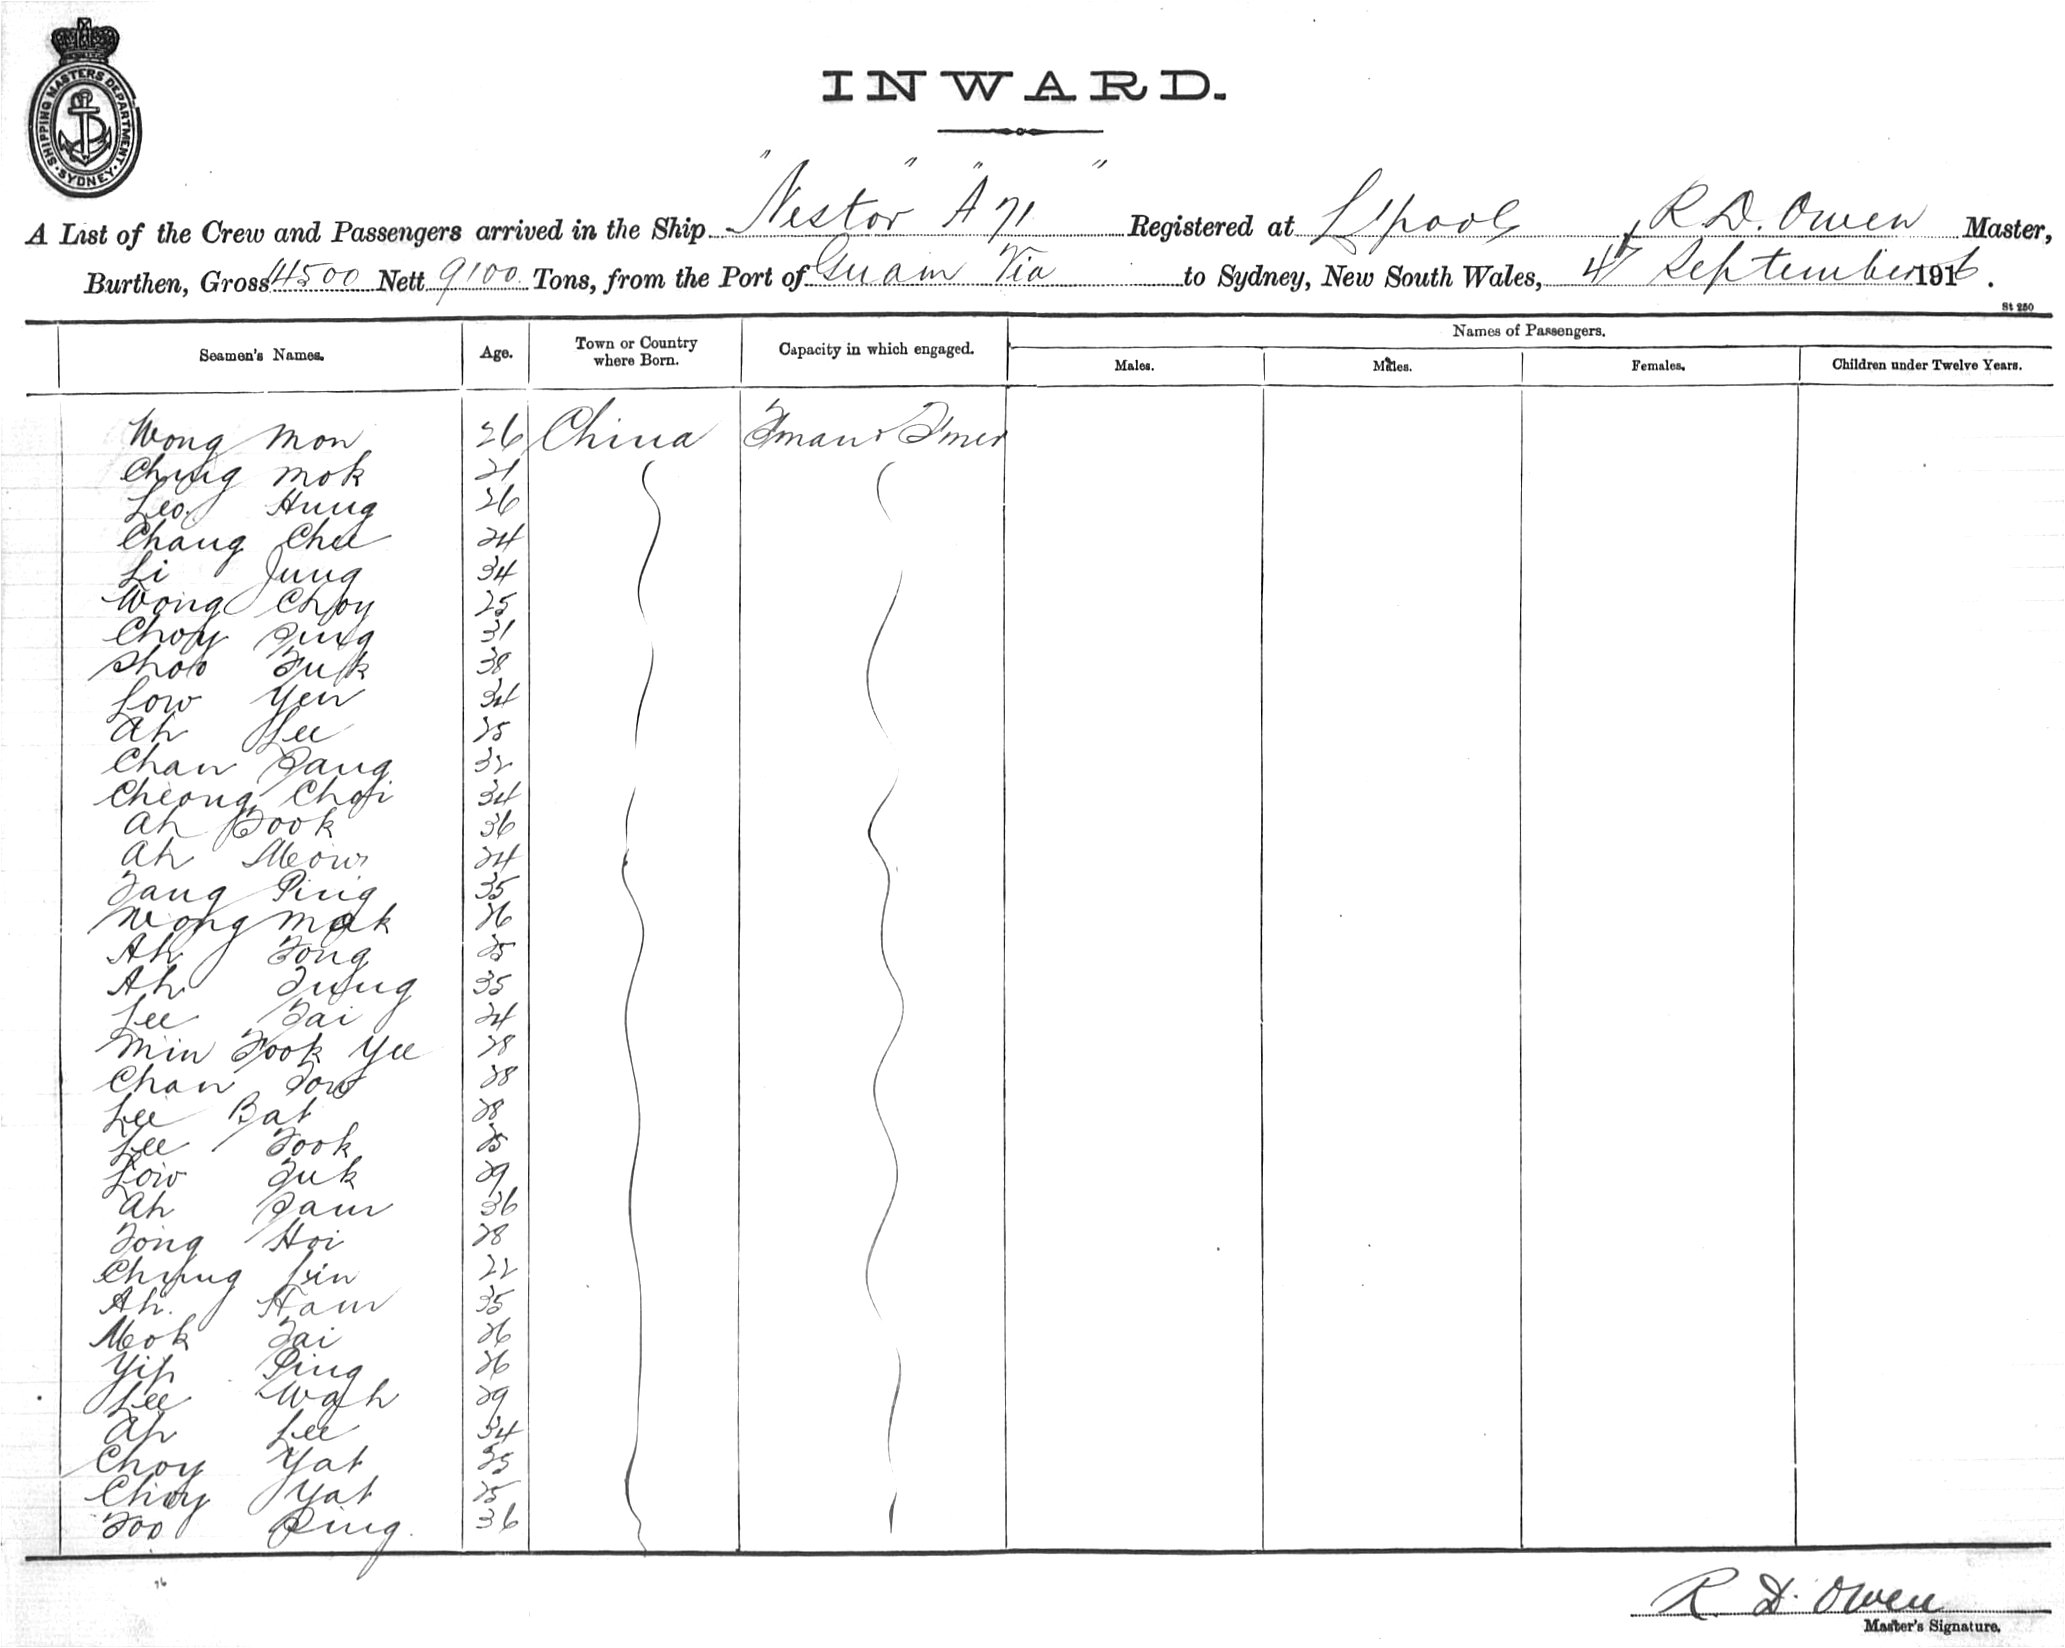 SHIPPING MASTERS DEPARTMENT
SYDNEY
INWARD.
A List of the Crew and Passengers arrived in the Ship "Nestor" "A 71" Registered at L'pool, R. D. Owen Master,
Burthen, Gross 14500 Nett 9100 Tons, from the Port of Guam Via to Sydney, New South Wales, 4th September 1916.
St 250
Seamen's Names. Age. Town or Country where Born. Capacity in which engaged. Names of Passengers.
Males. Males. Females. Children under Twelve Years.
Wong Mon 26 China Fman & Tmer
Chung Mok 21
Leo Hung 26
Chang Chee 24
Li Jung 34
Wong Choy 25
Choy 31
Shoo Fuk 38
Low Yen 34
Ah Lee 25
Chan 32
Cheong Choi 34
Ah Fook 36
Ah Meow 24
Fang Ping 35
Wong Mok 26
Ah 25
Ah 35
Lee Tai 24
Min Fook Yee 28
Chan 28
Lee Bat 28
Lee Fook 25
Low Fuk 29
Ah 36
Hoi 28
Chung Lin 22
Ah Ham 35
Mok Tai 26
Yip Ping 26
Lee Wah 29
Ah Lee 34
Choy Yat 35
Choy Yat 25
Foo Ping. 36
R. D. Owen
Master's Signature.